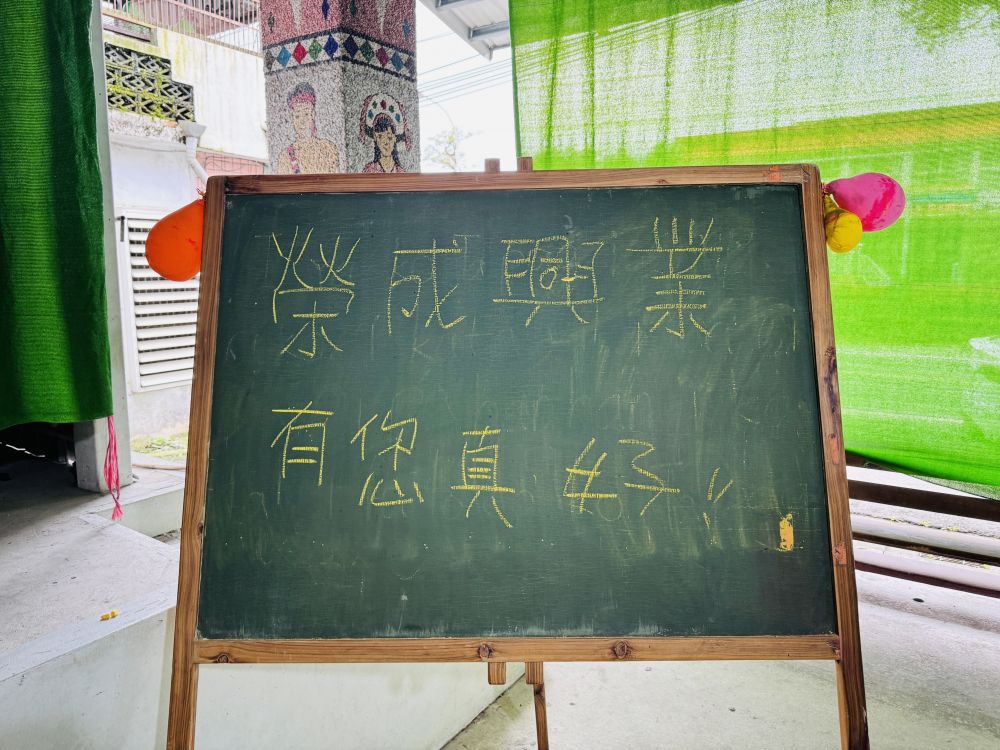 榮成興業
有您真好!!